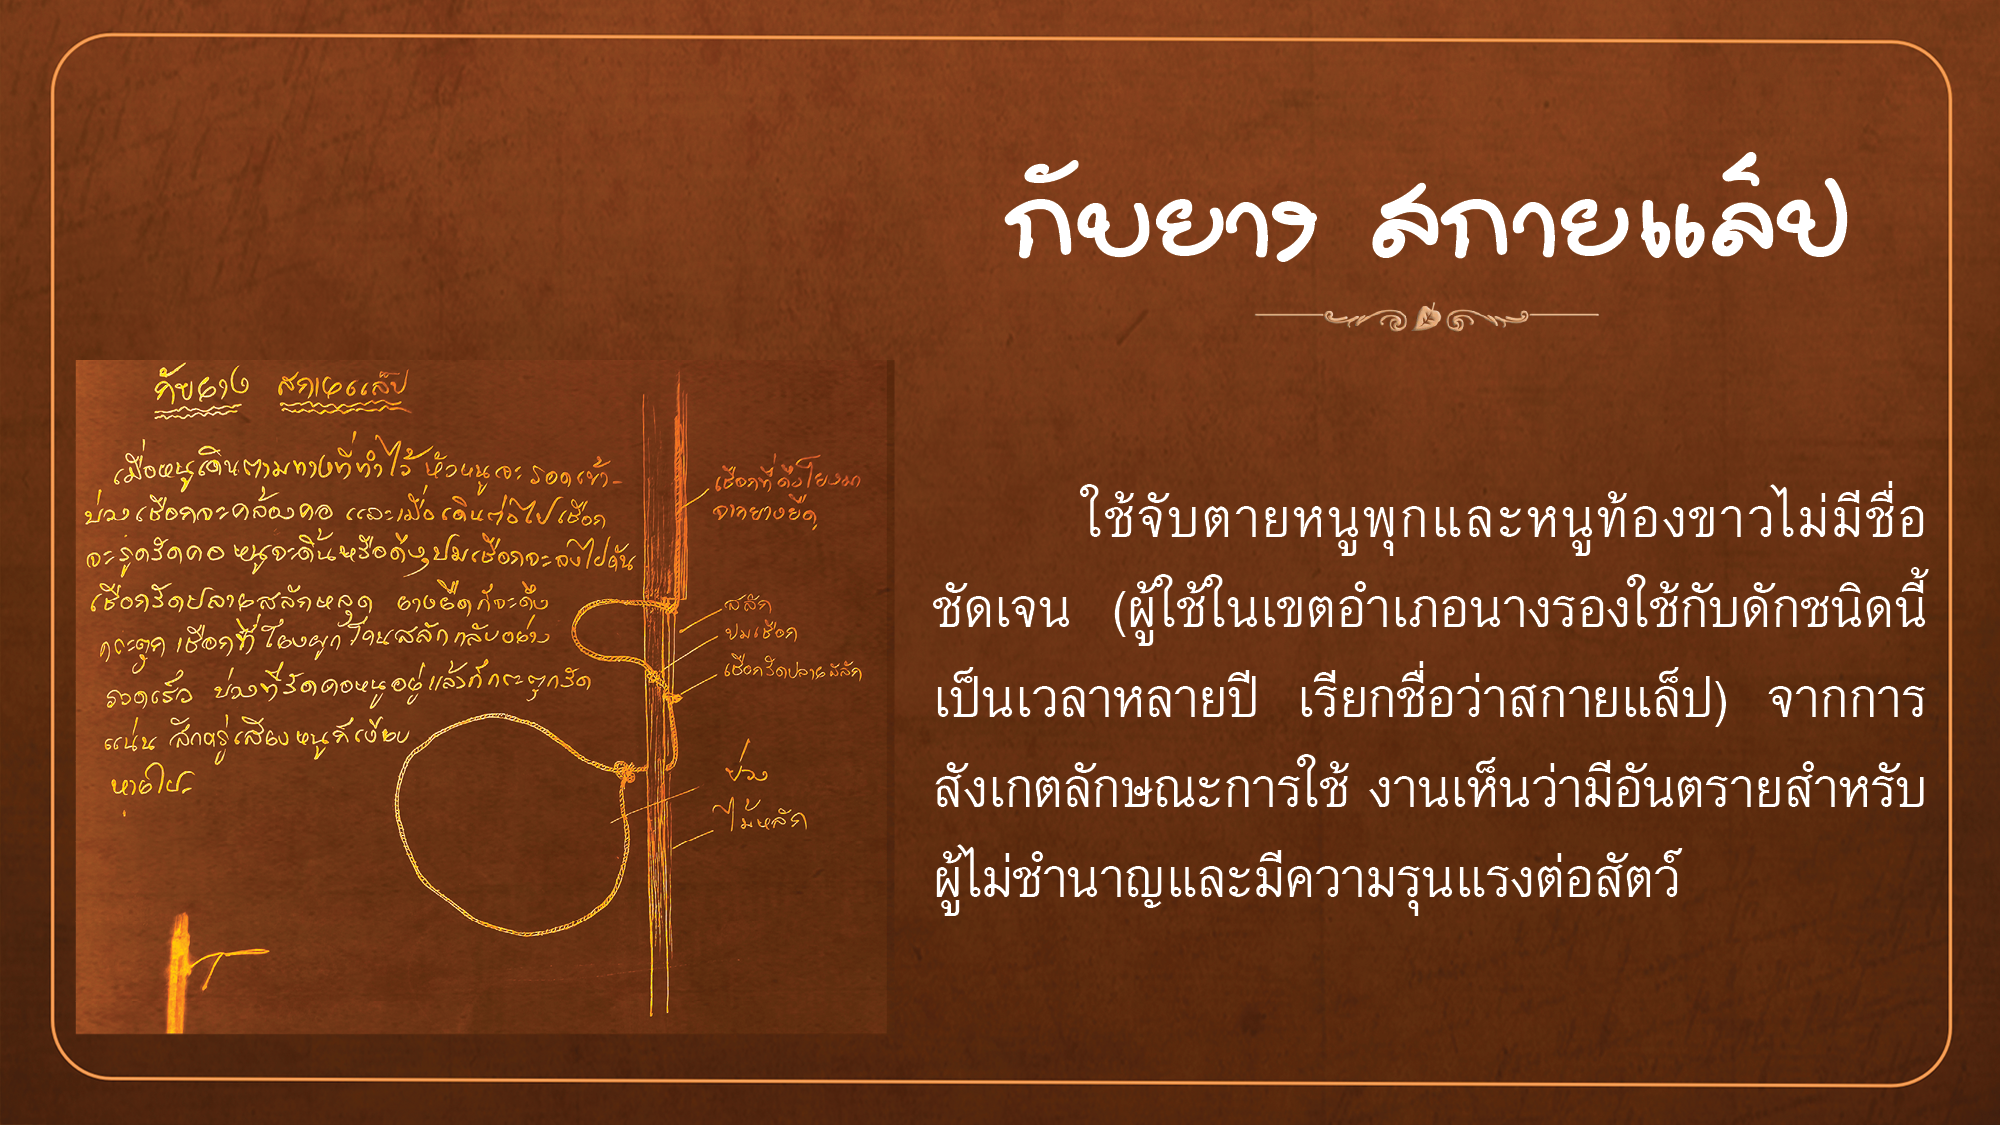 กับยาง สกายแล็ป
กับยาง สกายแล็ป
เมื่อหนูเดินตามทางที่ทำไว้ หัวหนูจะรอดเข้า-
บ่วงเชือกจะคล้องคอ และเมื่อเดินต่อไปเชือก
จะรูดรัดคอ หนูจะดิ้นหรือดึงปมเชือกจะลงไปดัน
เชือกรัดปลายสลักหลุด ยางยืดก็จะดึง
กระตุก เชือกที่โยงผูกโคนสลักกลับอย่าง
รวดเร็ว บ่วงที่รัดคอหนูอยู่แล้วก็กระตุกรัด
แน่น สักครู่เสียงหนูก็เงียบ
หายไป
เชือกที่ดึงโยงมา
จากยางยืด
สลัก
ปมเชือก
เชือกรัดปลายสลัก
บ่วง
ไม้หลัก
ใช้จับตายหนูพุกและหนูท้องขาวไม่มีชื่อ
ชัดเจน (ผู้ใช้ในเขตอำเภอนางรองใช้กับดักชนิดนี้
เป็นเวลาหลายปี เรียกชื่อว่าสกายแล็ป) จากการ
สังเกตลักษณะการใช้ งานเห็นว่ามีอันตรายสำหรับ
ผู้ไม่ชำนาญและมีความรุนแรงต่อสัตว์